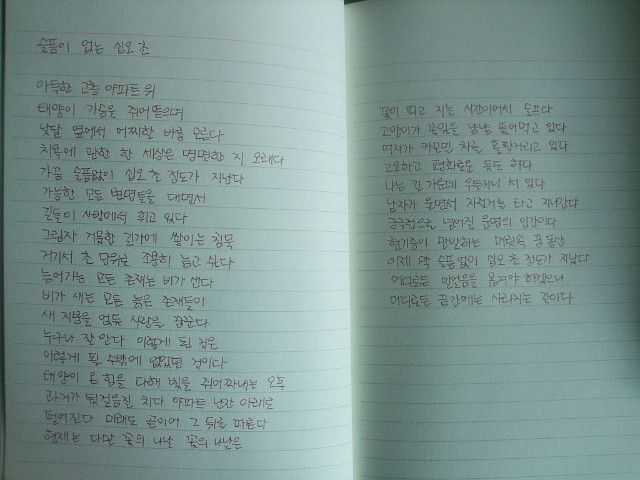 슬픔이 없는 십오 초
아득한 고층 아파트 위
태양이 가슴을 쥐어뜯으며
낮달 옆에서 어찌할 바를 모른다
치욕에 관한 한 세상은 멸망한 지 오래다
가끔 슬픔없이 십오 초 정도가 지난다
가능한 모든 변명들을 대면서
길들이 사방에서 휘고 있다
그림자 거뭇한 길가에 쌓이는 침묵
거기서 초 단위로 조용히 늙고 싶다
늙어가는 모든 존재는 비가 샌다
비가 새는 모든 늙은 존재들이
새 지붕을 얹듯 사랑을 꿈꾼다
누구나 잘 안다 이렇게 된 것은
이렇게 될 수밖에 없었던 것이다
태양이 온 힘을 다해 빛을 쥐어짜내는 오후
과거가 뒷걸음질 치다 아파트 난간 아래로
떨어진다 미래도 곧이어 그 뒤를 따른다
현재는 다만 꽃의 나날 꽃의 나날은
꽃이 피고 지는 시간이어서 슬프다
고양이가 꽃잎을 냠냠 뜯어먹고 있다
여자가 카모밀 차를 홀짝거리고 있다
고요하고 평화로운 듯도 하다
나는 길 가운데 우두커니 서 있다
남자가 울면서 자전거를 타고 지나간다
궁극적으로 넘어질 운명의 인간이다
현기증이 만발하는 머릿속 꿈 동산
이제 막 슬픔 없이 십오 초 정도가 지났다
어디로든 발걸음을 옮겨야 하겠으나
어디로든 끝간에는 사라지는 길이다